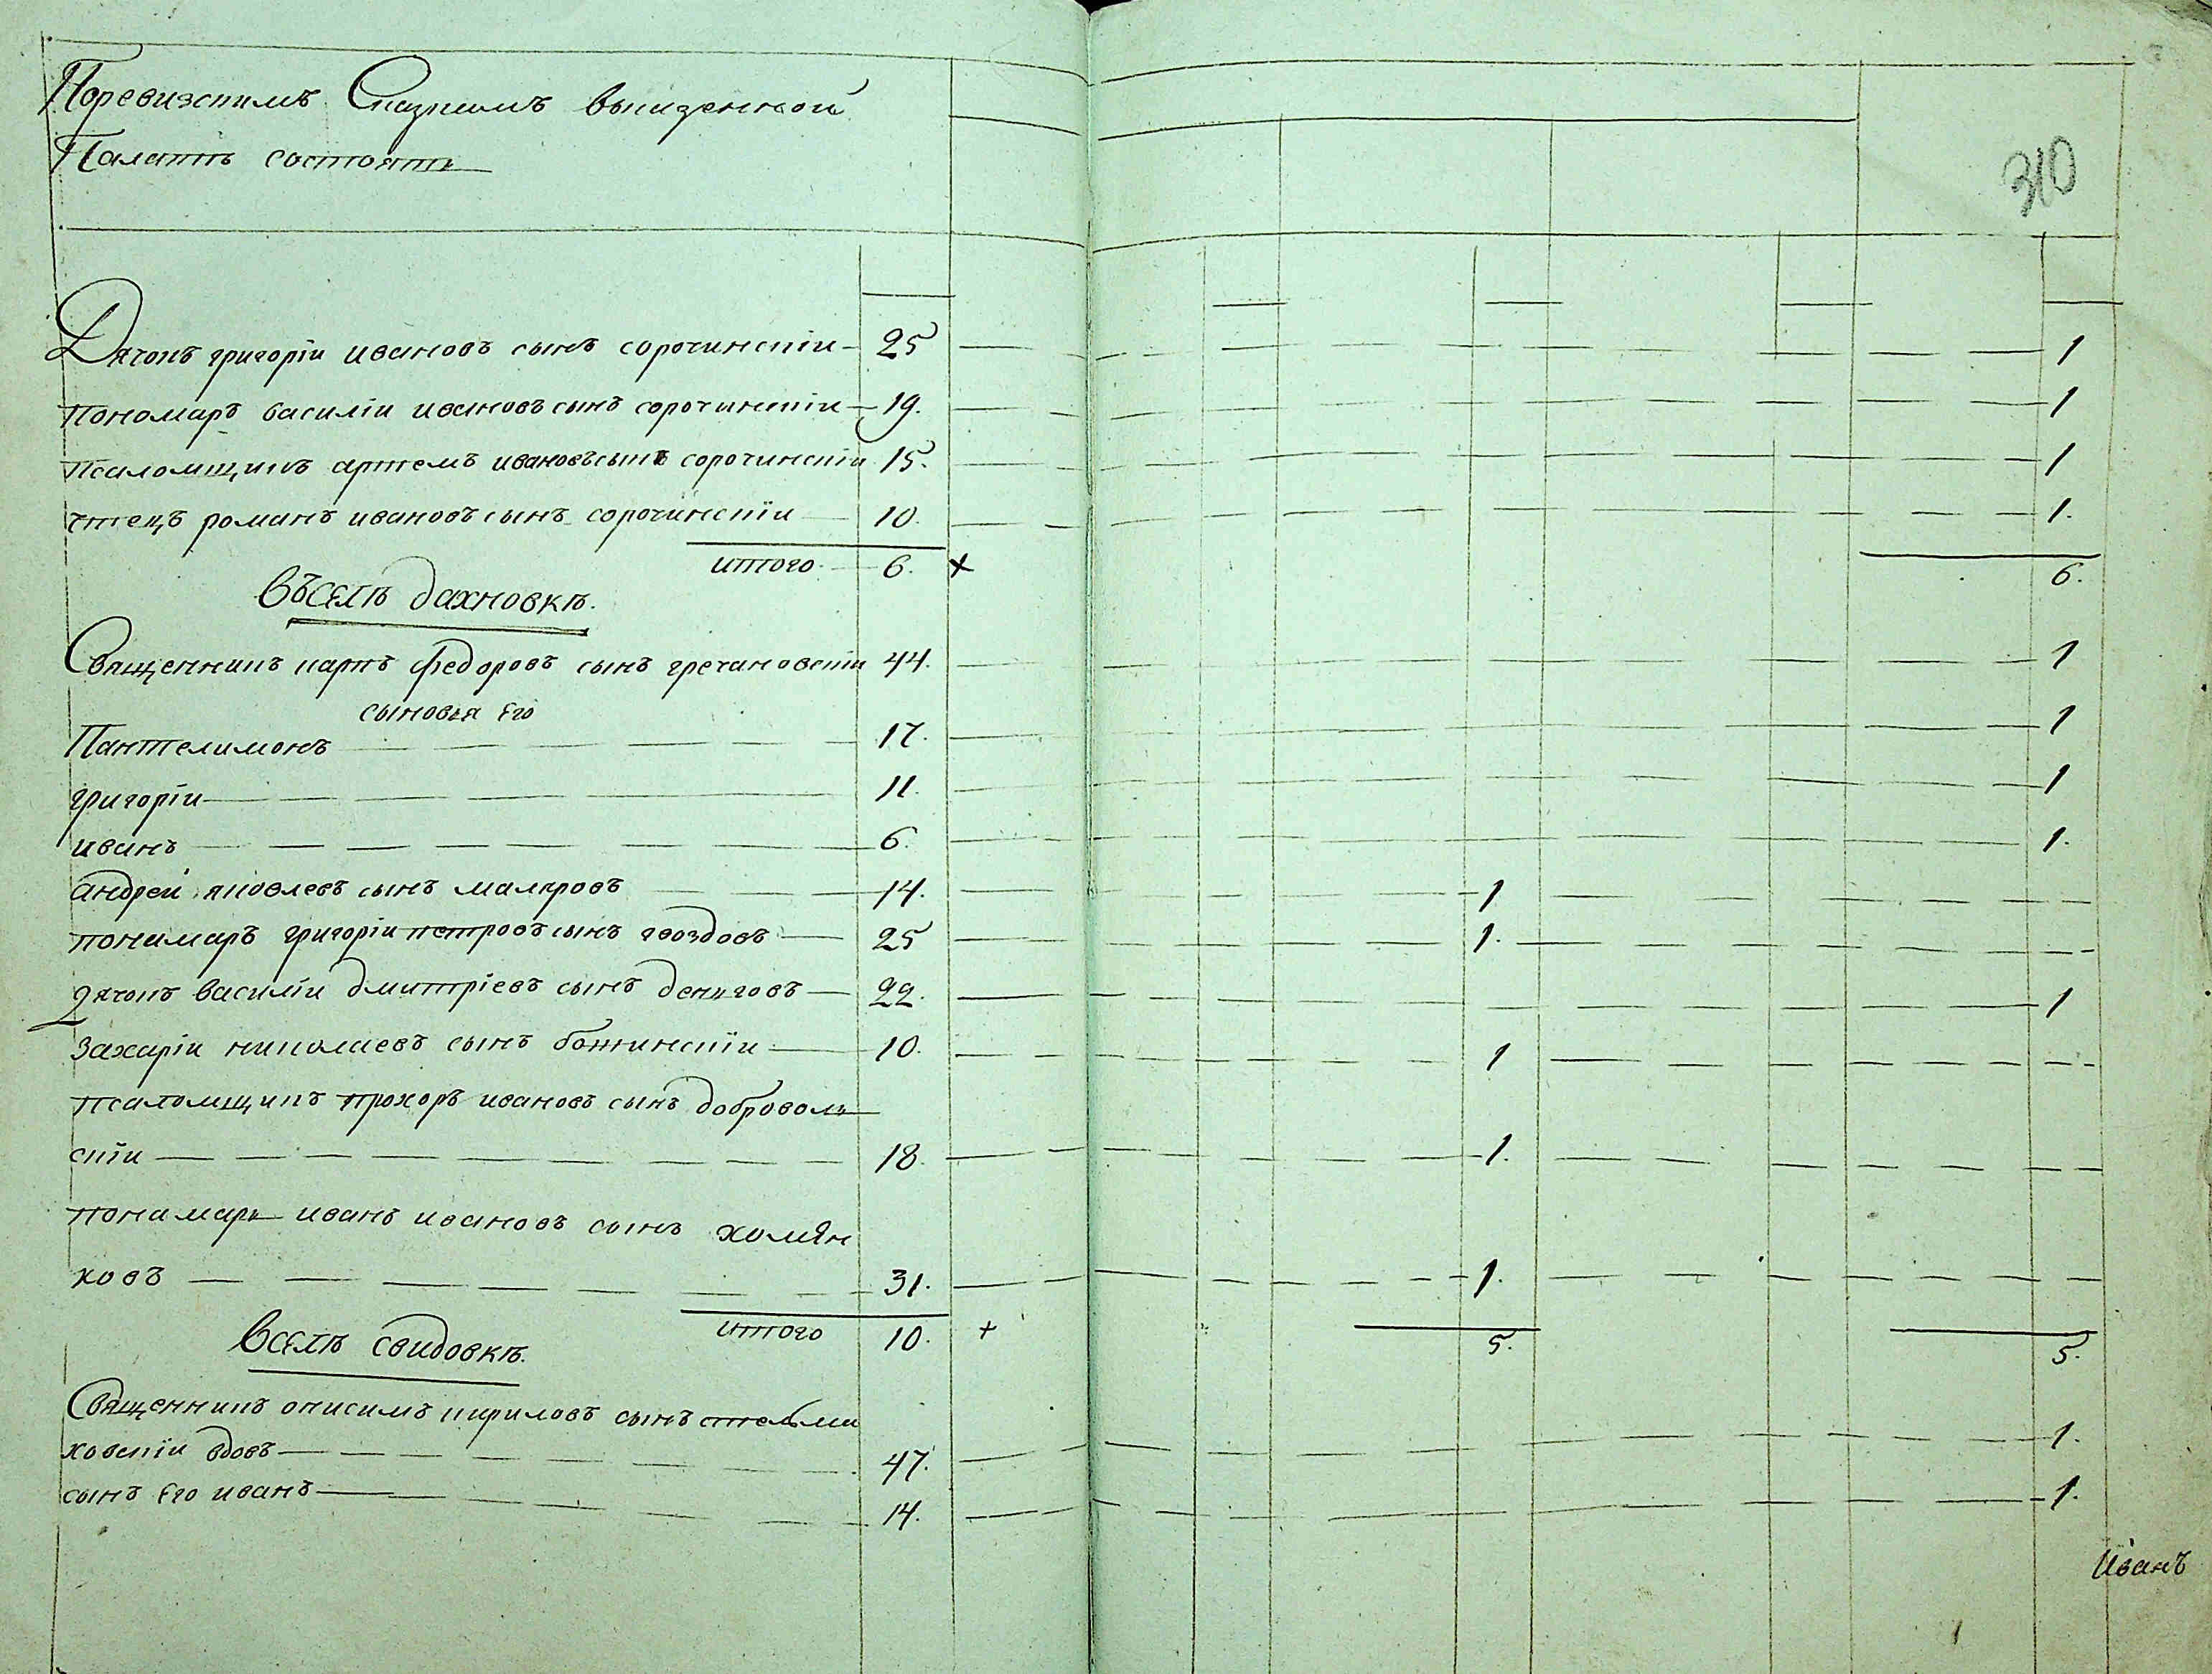 Поревизскимъ Сказкамъ вказенной
Палатѣ состоятъ
310
Дячокъ григоріи ивановъ сынъ сорочинскіи 25 1
пономаръ василіи ивановъ сынъ сорочинскіи 19. 1
псаломщикъ артемъ ивановъ сынъ сорочинскіи 15. 1
чтецъ романъ ивановъ сынъ сорочинскіи 10. 1.
итого 6. + 6.
въселѣ дахновкѣ.
Священникъ карпъ федоровъ сынъ гречановскіи 44. 1
сыновья его
Пантелимонъ 17. 1
григоріи 11. 1
иванъ 6. 1.
андреи яковлевъ сынъ 14. 1
понамаръ григоріи петровъ сынъ гвоздовъ 25 1.
дячокъ василіи дмитріевъ сынъ 22. 1
захаріи николаевъ сынъ божинскіи 10. 1
псаломщикъ прохоръ ивановъ сынъ доброволь
скіи 18. 1.
понамарь иванъ ивановъ сынъ хомян
ковъ 31. 1.
итого 10. + 5. 5.
вселѣ свидовкѣ.
Священникъ онисимъ кириловъ сынъ стельма
ховскіи вдовъ 47. 1.
сынъ его иванъ 14. 1.
Иванъ